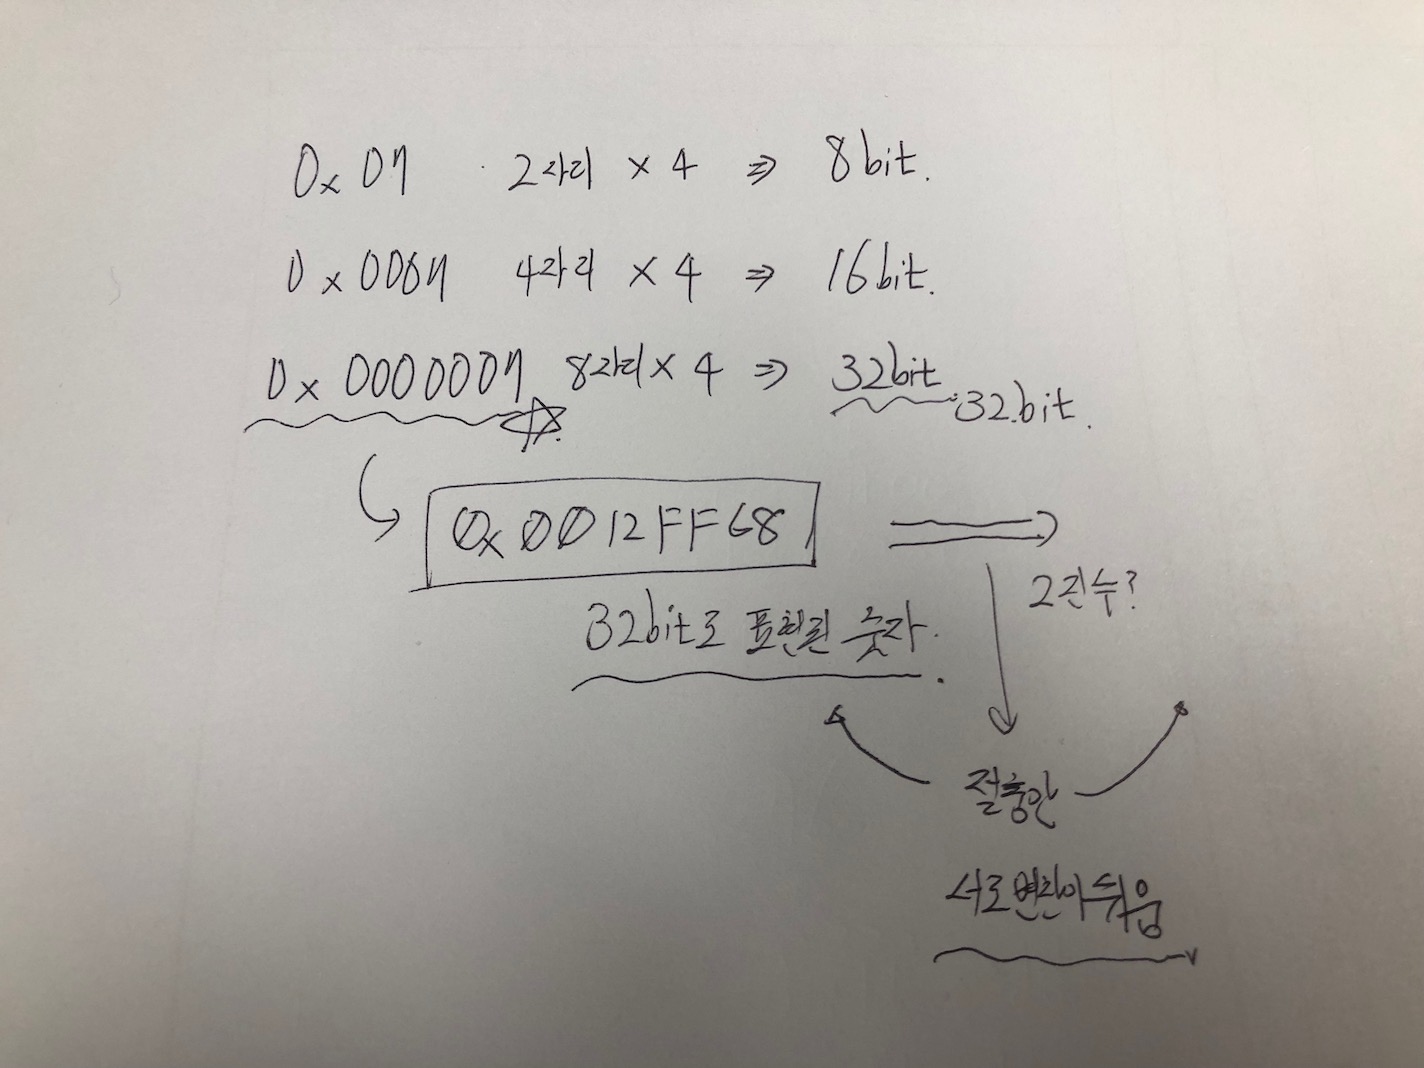 0x07 2자리 x 4 ⇒ 8bit.
0x0067 4자리 x 4 ⇒ 16bit.
0x00000007 8자리 x 4 ⇒ 32bit
32.bit.
0x0012FF68
2진수?
32bit로 표현된 숫자.
절충안
서로변환이쉬움